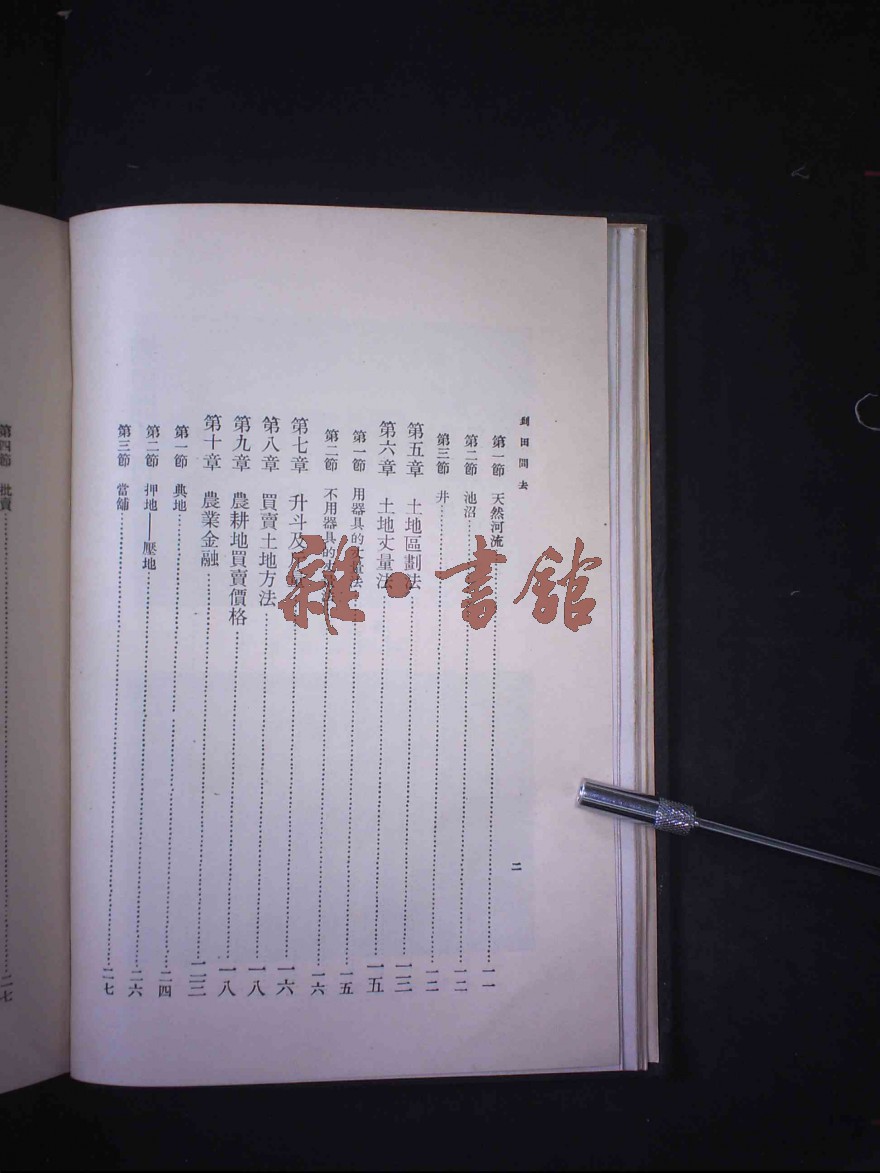 到田間去
第一節 天然河流……一一
第二節 池沼……一二
第三節 井……一二
第五章 土地區劃法……一三
第六章 土地丈量法……一五
第一節 用器具的丈量法……一五
第二節 不用器具的丈量法……一六
第七章 升斗及……一六
第八章 買賣土地方法……一八
第九章 農耕地買賣價格……一八
第十章 農業金融……二三
第一節 典地……二四
第二節 押地——壓地……二六
第三節 當舖……二七
二
第四節 批賣……二七
雜·書館